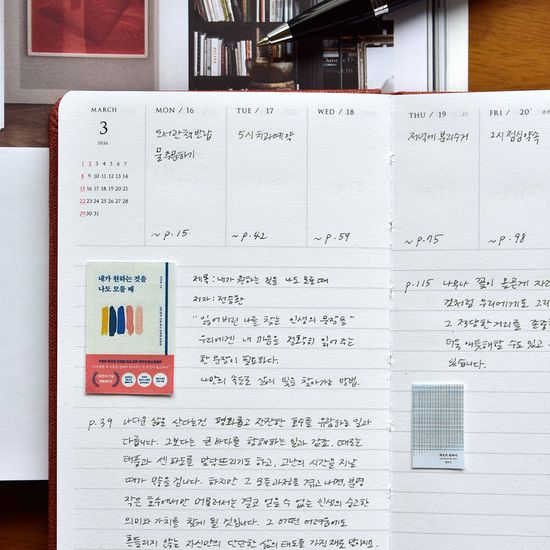 MARCH
3
2026
1 2 3 4 5 6 7
8 9 10 11 12 13 14
15 16 17 18 19 20 21
22 23 24 25 26 27 28
29 30 31
MON / 16
도서관책반납
물주문하기
~ p.15
TUE / 17
5시치과예약
~ p.42
WED / 18
~ p.59
THU / 19
저녁에 분리수거
~ p.75
FRI / 20
2시 점심약속
~ p.98
내가 원하는 것을
나도 모를 때
제목 : 내가 원하는 것을 나도 모를 때
저자 : 전승환
"잃어버린 나를 찾는 인생의 문장들"
우리에겐 내 마음을 정확히 읽어 주는
한 문장이 필요하다.
나만의 속도로 삶의 빛을 찾아가는 방법.
p.39 나다운 삶을 산다는건 평화롭고 잔잔한 호수를 유람하는 일과
다릅니다. 그보다는 큰 바다를 항해하는 일과 같죠. 때로는
태풍과 센 파도를 맞닥뜨리기도 하고, 고난의 시간을 지날
때가 많을 겁니다. 하지만 그 모든과정을 겪고 나면, 분명
작은 호수에만 머물러서는 결코 얻을 수 없는 인생의 숭고한
의미와 가치를 찾게 될 것입니다. 그 어떤 어려움에도
흔들리지 않는 자신만의 단단한 삶의 태도를 가진 채로 말이지요.
p.115 나무나 꽃이 올곧게 자라
것처럼 우리에게도 그러
그 적당한 거리를 존중
더욱 애틋해할 수도 있고
있습니다.